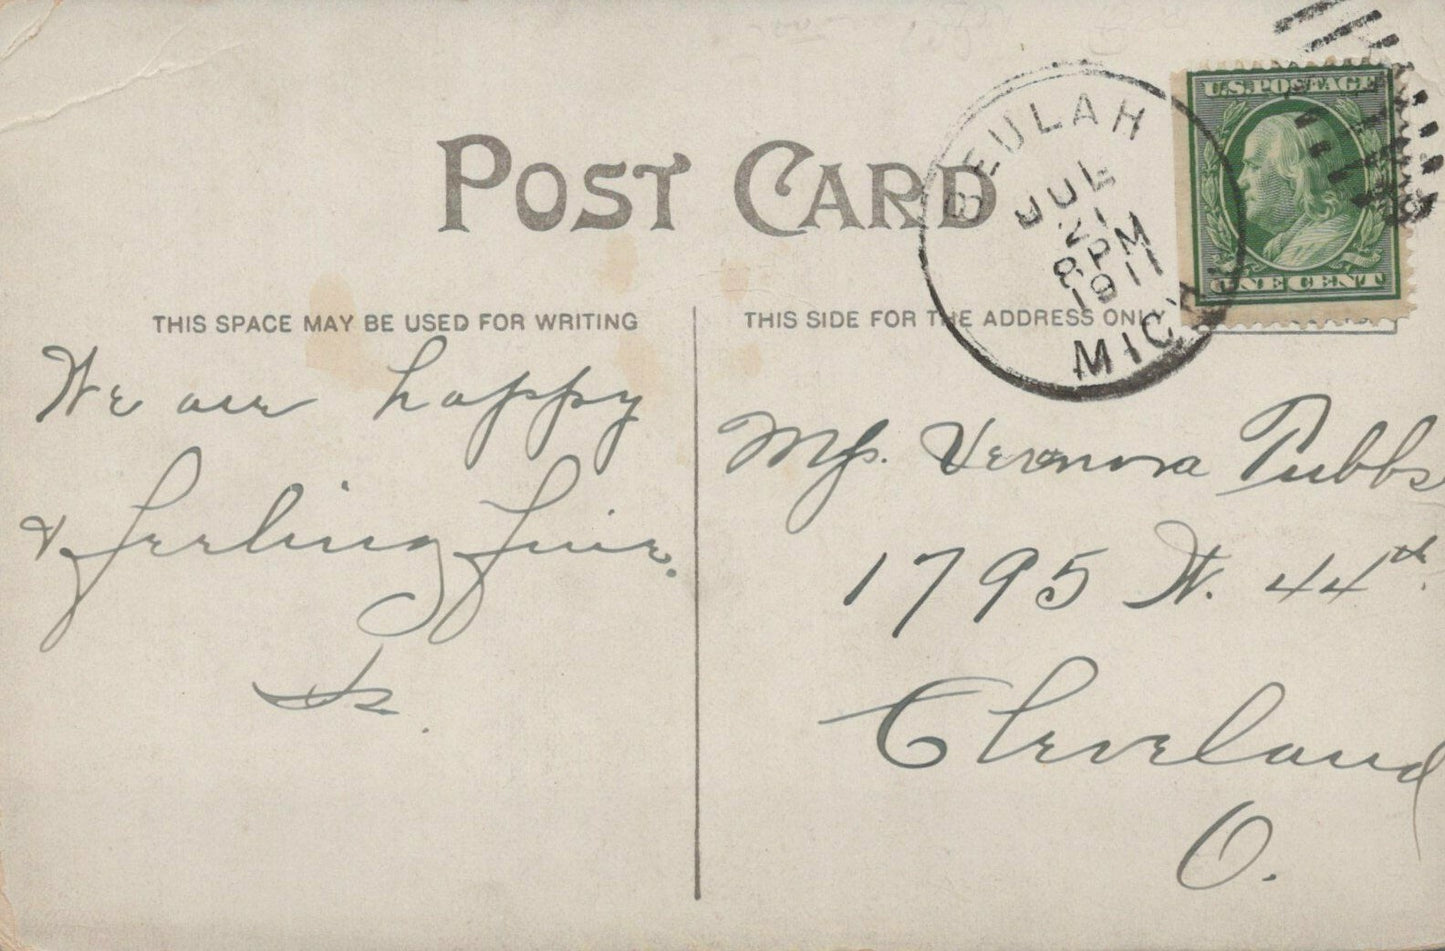 POST CARD
THIS SPACE MAY BE USED FOR WRITING
We are happy
& feeling fine.
THIS SIDE FOR THE ADDRESS ONLY
BEULAH
JUL
21
8 PM
1911
MICH.
U.S. POSTAGE
ONE CENT
Vernora Tubbs
1795 W. 44th.
Cleveland
O.